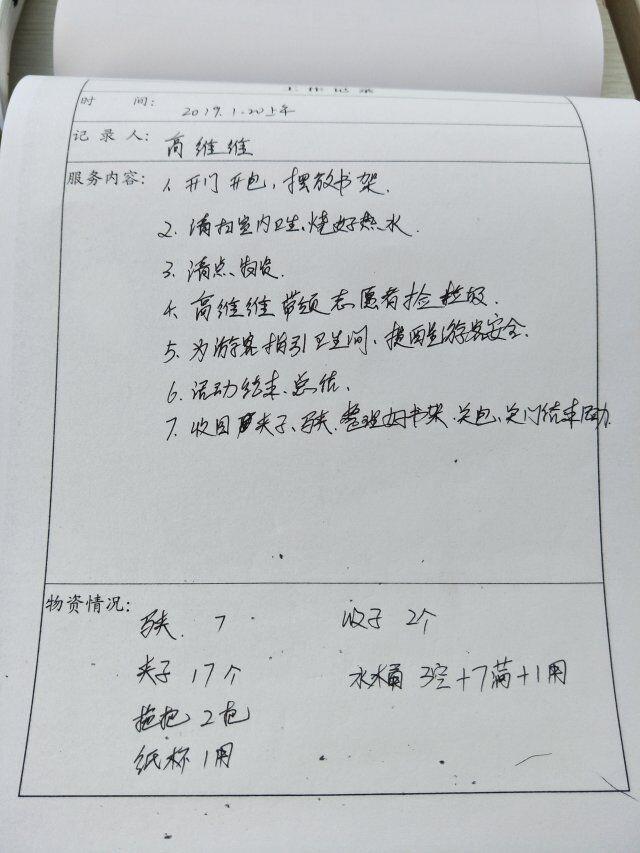 工作记录
时 间: 2019.1.20上午
记 录 人: 高维维
服务内容: 1. 开门开包,摆放书架.
2. 清扫室内卫生,烧好热水.
3. 清点物资.
4. 高维维带领志愿者捡垃圾.
5. 为游客指引卫生间、提醒游客安全.
6. 活动结束.总结.
7. 收回夹子、马夹.整理好书架.关包、关门结束活动.
物资情况:
马夹. 7 2个
夹子 17个 水桶 3空+7满+1用
拖把 2包
纸杯 1用